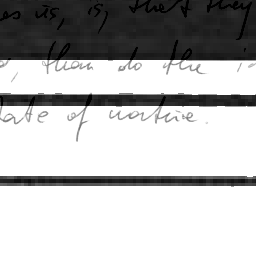 es us, is, that they
, than do the i
tate of nature.